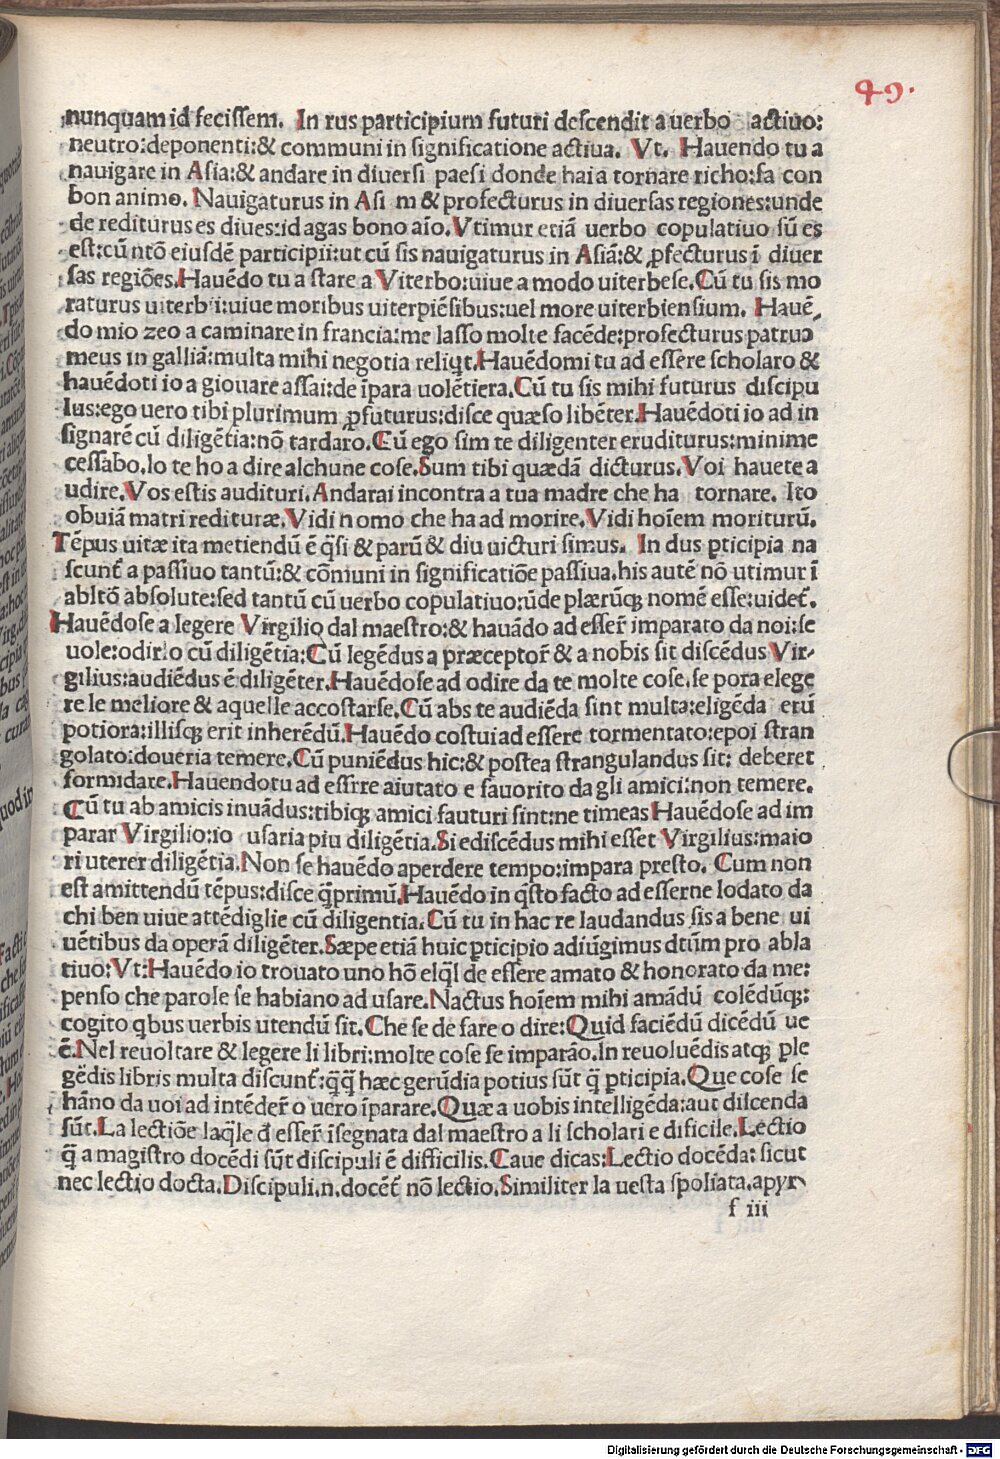 49.
nunquam id feciſſem. In rus participium futuri deſcendit a uerbo actiuo:
neutro:deponenti:& communi in ſignificatione actiua. Vt. Hauendo tu a
nauigare in Aſia:& andare in diuerſi paeſi donde hai a tornare richo:fa con
bon animo. Nauigaturus in Aſi m & profecturus in diuerſas regiones:unde
de rediturus es diues:id agas bono aīo. Vtimur etiā uerbo copulatiuo ſū es
eſt:cū ntō eiuſdē participii:ut cū ſis nauigaturus in Aſiā:& ꝓfecturus ī diuer
ſas regiōes. Hauēdo tu a ſtare a Viterbo:uiue a modo uiterbeſe. Cū tu ſis mo
raturus uiterbii:uiue moribus uiterpiēſibus:uel more uiterbienſium. Hauē
do mio zeo a caminare in francia:me laſſo molte facēde:profecturus patruo
meus in galliā:multa mihi negotia reliqt. Hauēdomi tu ad eſſere ſcholaro &
hauēdoti io a giouare aſſai:de īpara uolētiera. Cū tu ſis mihi futurus diſcipu
lus:ego uero tibi plurimum ꝓfuturus:diſce quæſo libēter. Hauēdoti io ad in
ſignarē cū diligētia:nō tardaro. Cū ego ſim te diligenter eruditurus:minime
ceſſabo. Io te ho a dire alchune coſe. Sum tibi quædā dicturus. Voi hauete a
udire. Vos eſtis audituri. Andarai incontra a tua madre che ha tornare. Ito
obuiā matri redituræ. Vidi n omo che ha ad morire. Vidi hoīem moriturū.
Tēpus uitæ ita metiendū ē q̄ſi & parū & diu uicturi ſimus. In dus ꝑticipia na
ſcunt̄ a paſſiuo tantū:& cōmuni in ſignificatiōe paſſiua. his autē nō utimur ī
abltō abſolute:ſed tantū cū uerbo copulatiuo:ūde plærūqꝫ nomē eſſe:uidet̄.
Hauēdoſe a legere Virgilio dal maeſtro:& hauādo ad eſſer̄ imparato da noi:ſe
uole:odirlo cū diligētia:Cū legēdus a præceptor̄ & a nobis ſit diſcēdus Vir-
gilius:audiēdus ē diligēter. Hauēdoſe ad odire da te molte coſe. ſe pora elege
re le meliore & aquelle accoſtarſe. Cū abs te audiēda ſint multa:eligēda erū
potiora:illiſqꝫ erit inherēdū. Hauēdo coſtui ad eſſere tormentato:e poi ſtran
golato:doueria temere. Cū puniēdus hic:& poſtea ſtrangulandus ſit: deberet
formidare. Hauendo tu ad eſſire aiutato e fauorito da gli amici:non temere.
Cū tu ab amicis inuādus:tibiqꝫ amici fauturi ſint:ne timeas Hauēdoſe ad im
parar Virgilio:io uſaria piu diligētia. Si ediſcēdus mihi eſſet Virgilius:maio
ri uterer diligētia. Non ſe hauēdo aperdere tempo:impara preſto. Cum non
eſt amittendū tēpus:diſce q̄primū. Hauēdo in q̄ſto facto ad eſſerne lodato da
chi ben uiue attēdiglie cū diligentia. Cū tu in hac re laudandus ſis a bene ui
uētibus da operā diligēter. Sæpe etiā huic ꝑticipio adiūgimus dtūm pro abla
tiuo: Vt: Hauēdo io trouato uno hō elq̄l de eſſere amato & honorato da me:
penſo che parole ſe habiano ad uſare. Nactus hoīem mihi amādū colēdūqꝫ:
cogito qbus uerbis utendū ſit. Che ſe de fare o dire:Quid faciēdū dicēdū ue
ē. Nel reuoltare & legere li libri:molte coſe ſe imparāo. In reuoluēdis atqꝫ ple
gēdis libris multa diſcunt̄:q̄q̄ hæc gerūdia potius ſūt q̄ ꝑticipia. Que coſe ſe
hāno da uoi ad intēder̄ o uero īparare. Quæ a uobis intelligēda:aut diſcenda
ſūt. La lectiōe laq̄le đ eſſer̄ īſegnata dal maeſtro a li ſcholari e dificile. Lectio
q̄ a magiſtro docēdi ſūt diſcipuli ē difficilis. Caue dicas:Lectio docēda: ſicut
nec lectio docta. Diſcipuli.n.docēt̄ nō lectio. Similiter la ueſta ſpoliata. a pyr
f iii
Digitalisierung gefördert durch die Deutsche Forschungsgemeinschaft - DFG